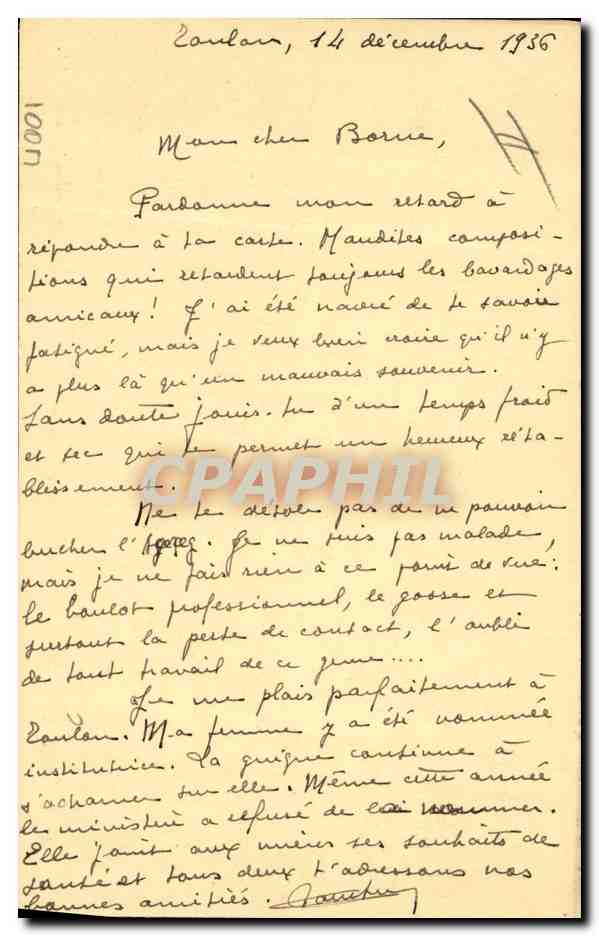 Toulon, 14 décembre 1936
100N
Mon cher Borne,
Pardonne mon retard à
répondre à ta carte. Maudites composi-
tions qui retardent toujours les bavardages
amicaux ! J'ai été navré de te savoir
fatigué, mais je veux bien croire qu'il n'y
a plus là qu'un mauvais souvenir.
Sans doute jouis-tu d'un temps froid
et sec qui te permet un heureux réta-
blissement.
CPAPHIL
Ne te désole pas de ne pouvoir
bucher l'agreg. Je ne suis pas malade,
mais je ne fais rien à ce point de vue :
le boulot professionnel, le gosse et
surtout la perte de contact, l'oubli
de tout travail de ce genre....
Je me plais parfaitement à
Toulon. Ma femme y a été nommée
institutrice. La guigne continue à
s'acharner sur elle. Même cette année
le ministère a refusé de la nommer.
Elle joint aux miens ses souhaits de
santé et tous deux t'adressons nos
bonnes amitiés.